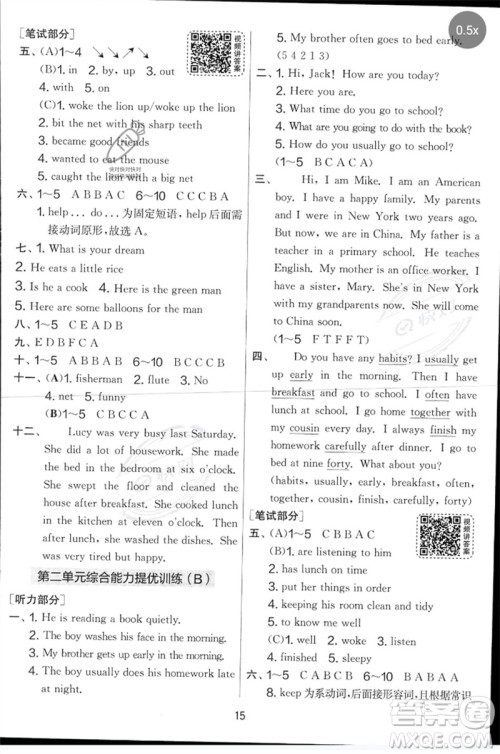 [笔试部分]
五、(A)1~4 ↘ ↗ ↘ ↗
(B)1. in 2. by, up 3. out
4. with 5. on
(C)1. woke the lion up/woke up the lion
2. bit the net with his sharp teeth
3. became good friends
4. wanted to eat the mouse
5. caught the lion with a big net
六、1~5 ABBAC 6~10 CCCBA
1. help... do...为固定短语,help 后面需
接动词原形,故选 A。
七、1. What is your dream
2. He eats a little rice
3. Here is a book for you
4. Here are some balloons for the man
八、1~5 CEADB
九、EDBFCA
十、1~5 ABBAB 6~10 BCCCB
十一、(A)1. fisherman 2. flute 3. No
4. net 5. funny
(B)1~5 CBCCA
十二、 Lucy was very busy last Saturday.
She did a lot of housework. She made the
bed in the bedroom at six o'clock. She
swept the floor and cleaned the house
after breakfast. She cooked lunch in the
kitchen at eleven o'clock. She washed
clothes in the afternoon. She was very
tired but happy.
第二单元综合能力提优训练(B)
[听力部分]
一、1. He is reading a book quietly.
2. The boy washes his face in the morning.
3. My brother gets up early in the morning.
4. The boy usually does his homework late
at night.
5. My brother often goes to bed early.
(5 4 2 1 3)
二、1. Hi, Jack! How are you today?
2. Here you are.
3. What time do you go to school?
4. What do you do before bedtime?
5. How do you go to school?
(1~5) BCACA
三、 Hi, I am Mike. I am an American
boy. I have a happy family. My
parents and I were in New York two years ago.
But now we are in China. My father is
a teacher in a primary school. He teaches
English. My mother is an office worker. I
have a sister, Mary. She's in New York
with my grandparents now. They will come to
China soon.
(1~5) FTFFT
四、 Do you have any habits? I usually
get up early in the morning. I have
breakfast at seven o'clock. I often have
lunch at school. I go home together with
my cousin. I always finish my
homework carefully after dinner. I go to
bed at nine forty. What about you?
(habits, usually, early, breakfast, often,
together, finish, carefully, forty)
[笔试部分]
五、(A)1~5 × √ × √ √
(B)1. are listening to him
2. has long lunch breaks
3. put her things in order
4. keeping his room clean and tidy
5. usually goes to bed late
(C)1. taking 2. badly 3. to be
4. finished 5. sleepy
六、1~5 CABCB 6~10 CBABA
8. keep 为系动词,后面接形容词,且根据常识
15
0.5x
视频讲答案
视频讲答案